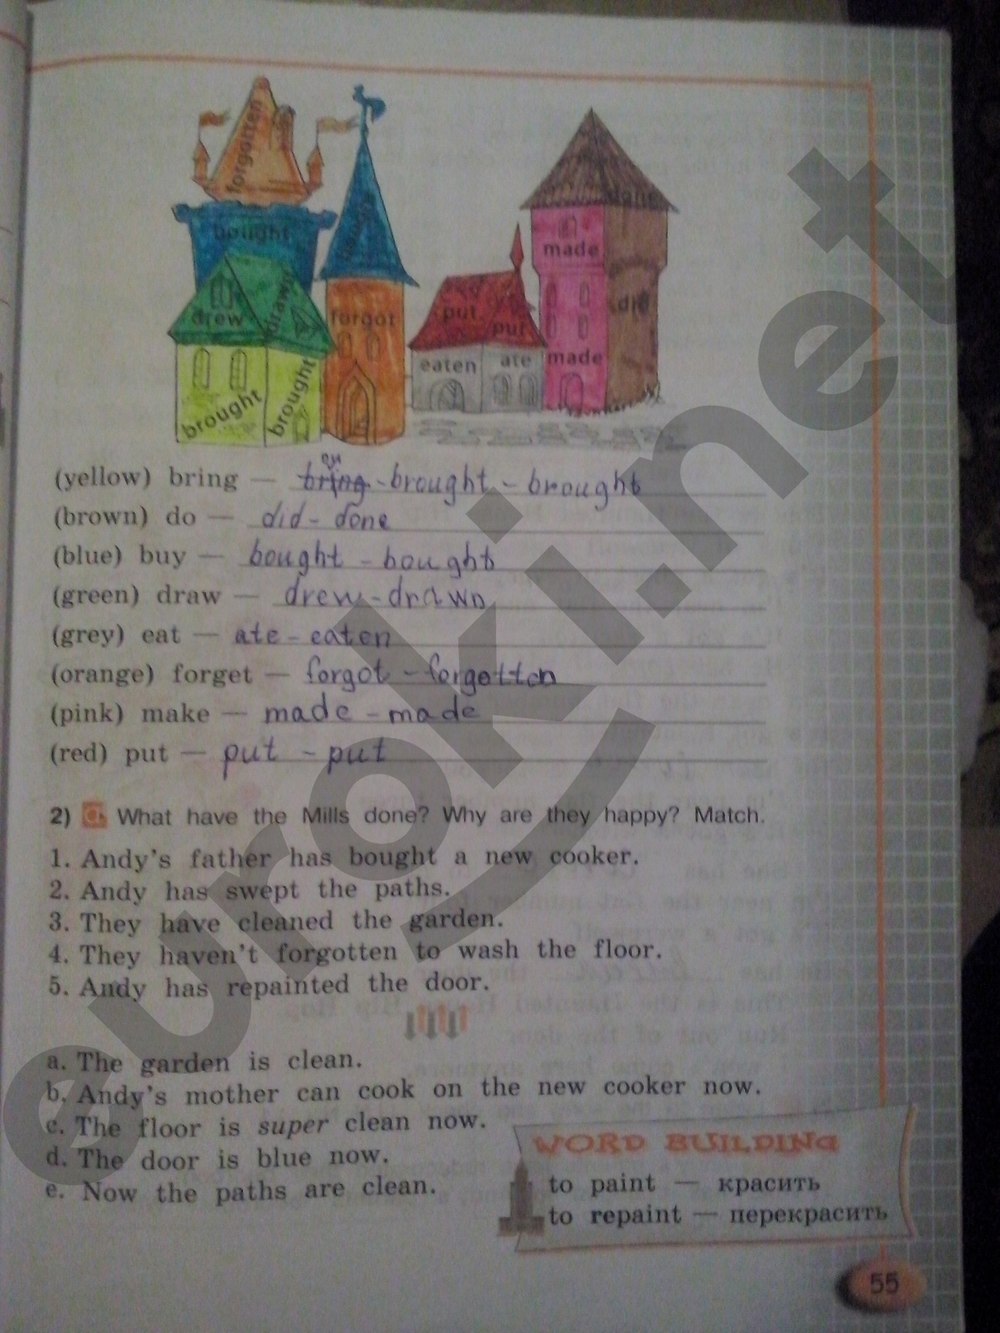 forgotten
bought
bought
done
made
drew
drawn
forgot
put
put
did
eaten
ate
made
brought
brought
(yellow) bring — bring - brought - brought
(brown) do — did - done
(blue) buy — bought - bought
(green) draw — drew - drawn
(grey) eat — ate - eaten
(orange) forget — forgot - forgotten
(pink) make — made - made
(red) put — put - put
2) a. What have the Mills done? Why are they happy? Match.
1. Andy's father has bought a new cooker.
2. Andy has swept the paths.
3. They have cleaned the garden.
4. They haven't forgotten to wash the floor.
5. Andy has repainted the door.
a. The garden is clean.
b. Andy's mother can cook on the new cooker now.
c. The floor is super clean now.
d. The door is blue now.
e. Now the paths are clean.
WORD BUILDING
to paint — красить
to repaint — перекрасить
55
euroki.net